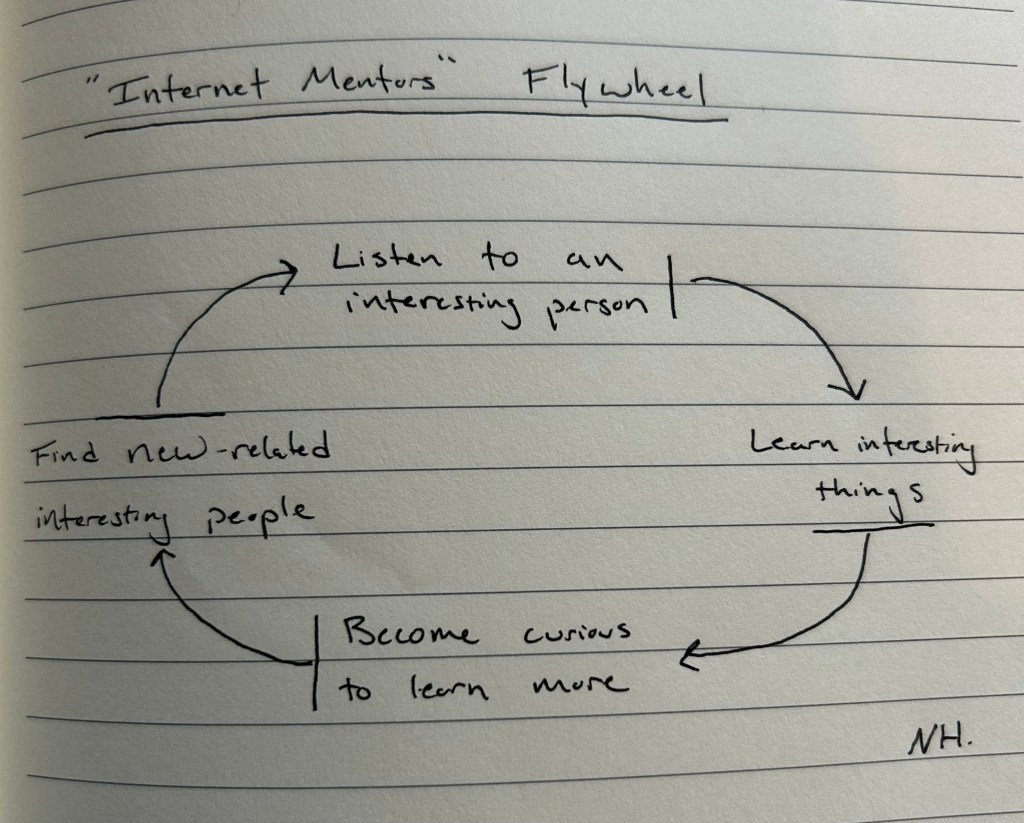 "Internet Mentors" Flywheel
Listen to an
interesting person
Find new-related
interesting people
Learn interesting
things
Become curious
to learn more
NH.